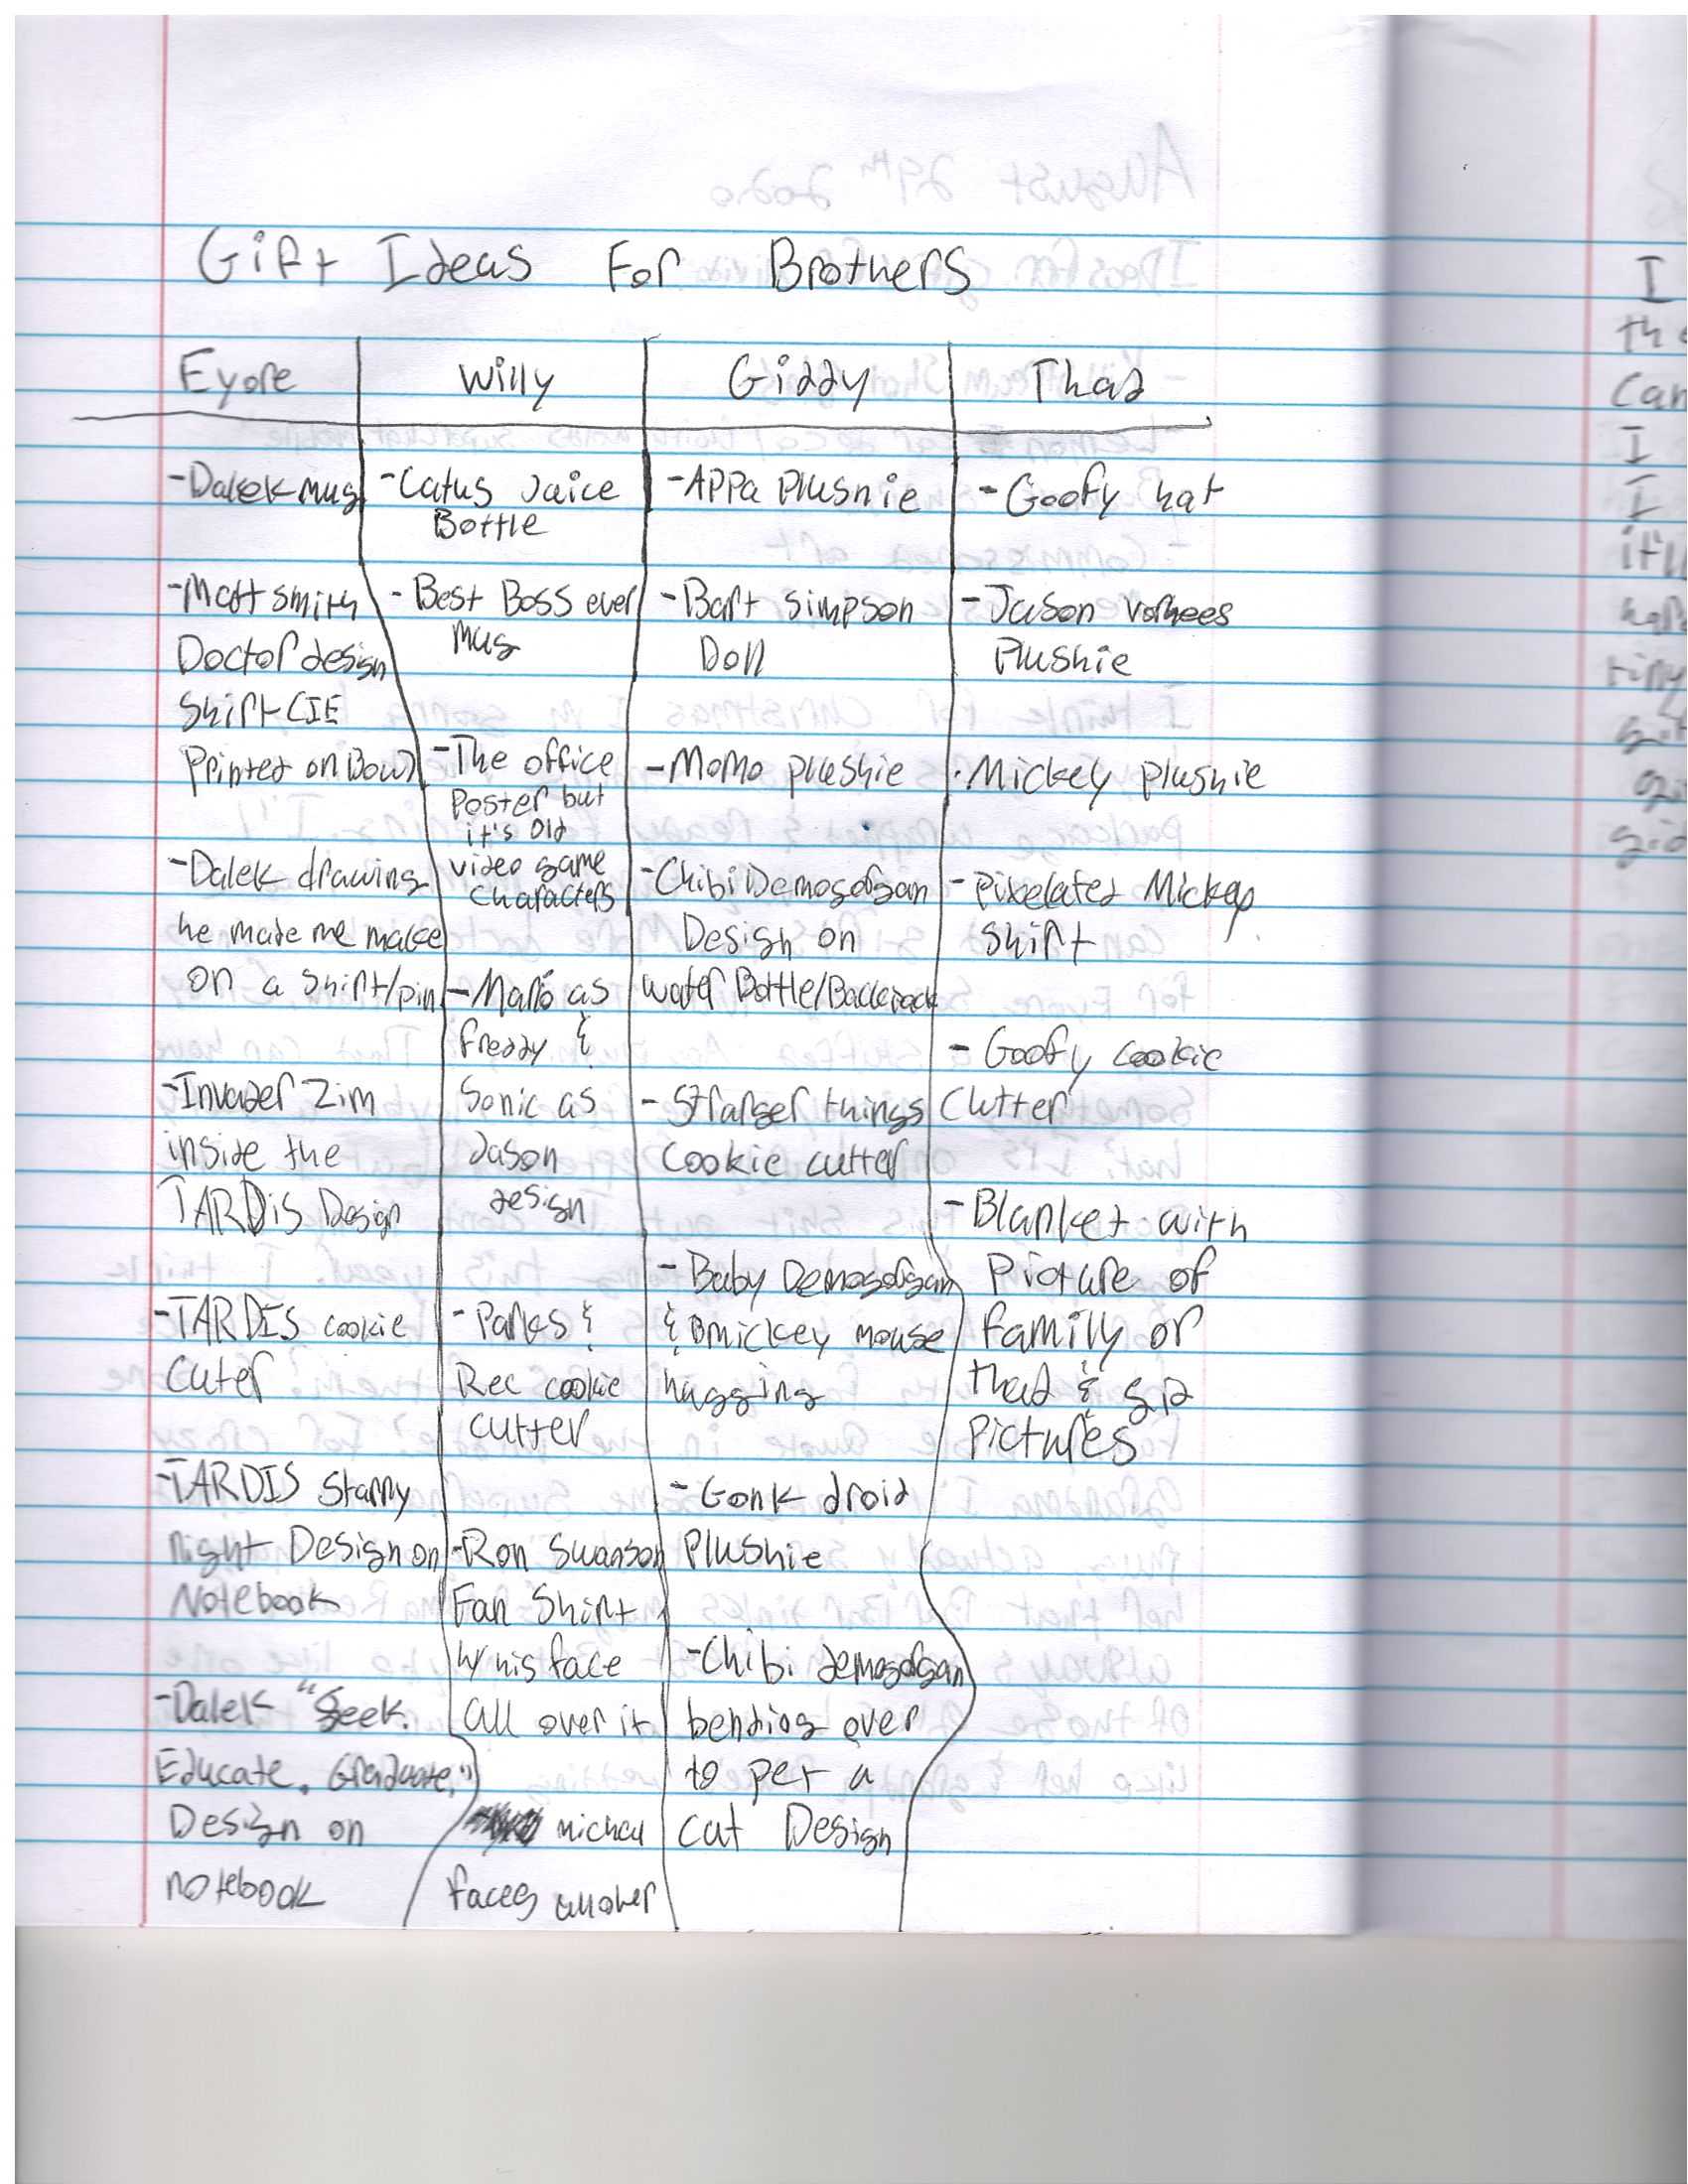 Gift Ideas For Brothers
Eyore
-Dalek mug
-Matt smith
Doctor design
Shirt CIE
Printed on Bow)
-Dalek drawing
he made me make
on a shirt/pin
-Invader Zim
inside the
TARDiS Design
-TARDIS cookie
Cuter
-TARDIS starry
night Design on
Notebook
-Dalek "Seek.
Educate. Graduate."
Design on
notebook
Willy
-Catus Juice
Bottle
-Best Boss ever
Mug
-The office
Poster but
it's old
video game
characters
-Mario as
freddy &
Sonic as
Jason
design
-Parks &
Rec cookie
cutter
-Ron Swanson
Fan Shirt
W/ his face
all over it
michael
faces all over
Giddy
-APPa Plushie
-Bart simpson
Doll
-Momo plushie
-Chibi Demogorgan
Design on
water Bottle/Backpack
-Stranger things
Cookie cutter
-Baby Demogorgan
& mickey mouse
hugging
-Gonk droid
Plushie
-Chibi demogorgan
bending over
to pet a
cat Design
Thad
-Goofy hat
-Jason vorhees
Plushie
·Mickey plushie
-Pixelated Mickey
shirt
-Goofy cookie
Cutter
-Blanket with
Picture of
family or
thad & gid
Pictures
I
the
can
I
I